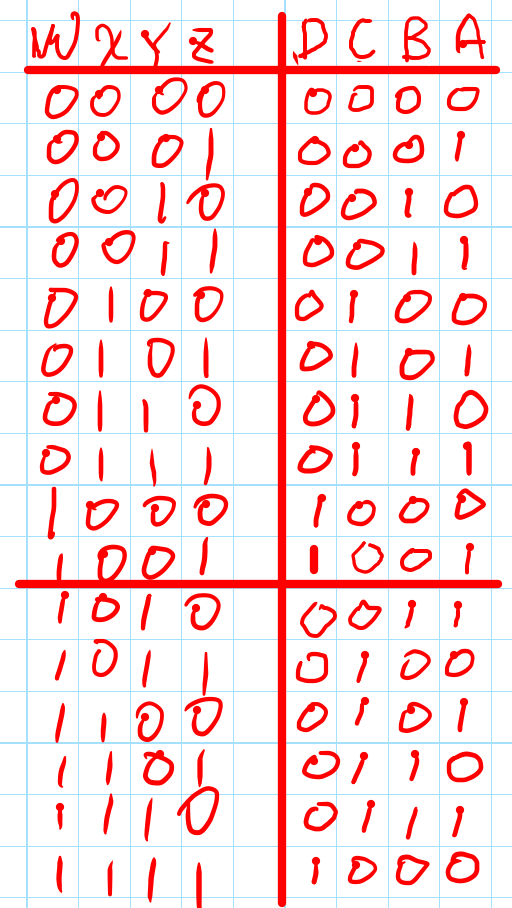 W X Y Z D C B A
0 0 0 0 0 0 0 0
0 0 0 1 0 0 0 1
0 0 1 0 0 0 1 0
0 0 1 1 0 0 1 1
0 1 0 0 0 1 0 0
0 1 0 1 0 1 0 1
0 1 1 0 0 1 1 0
0 1 1 1 0 1 1 1
1 0 0 0 1 0 0 0
1 0 0 1 1 0 0 1
1 0 1 0 0 0 1 1
1 0 1 1 0 1 0 0
1 1 0 0 0 1 0 1
1 1 0 1 0 1 1 0
1 1 1 0 0 1 1 1
1 1 1 1 1 0 0 0